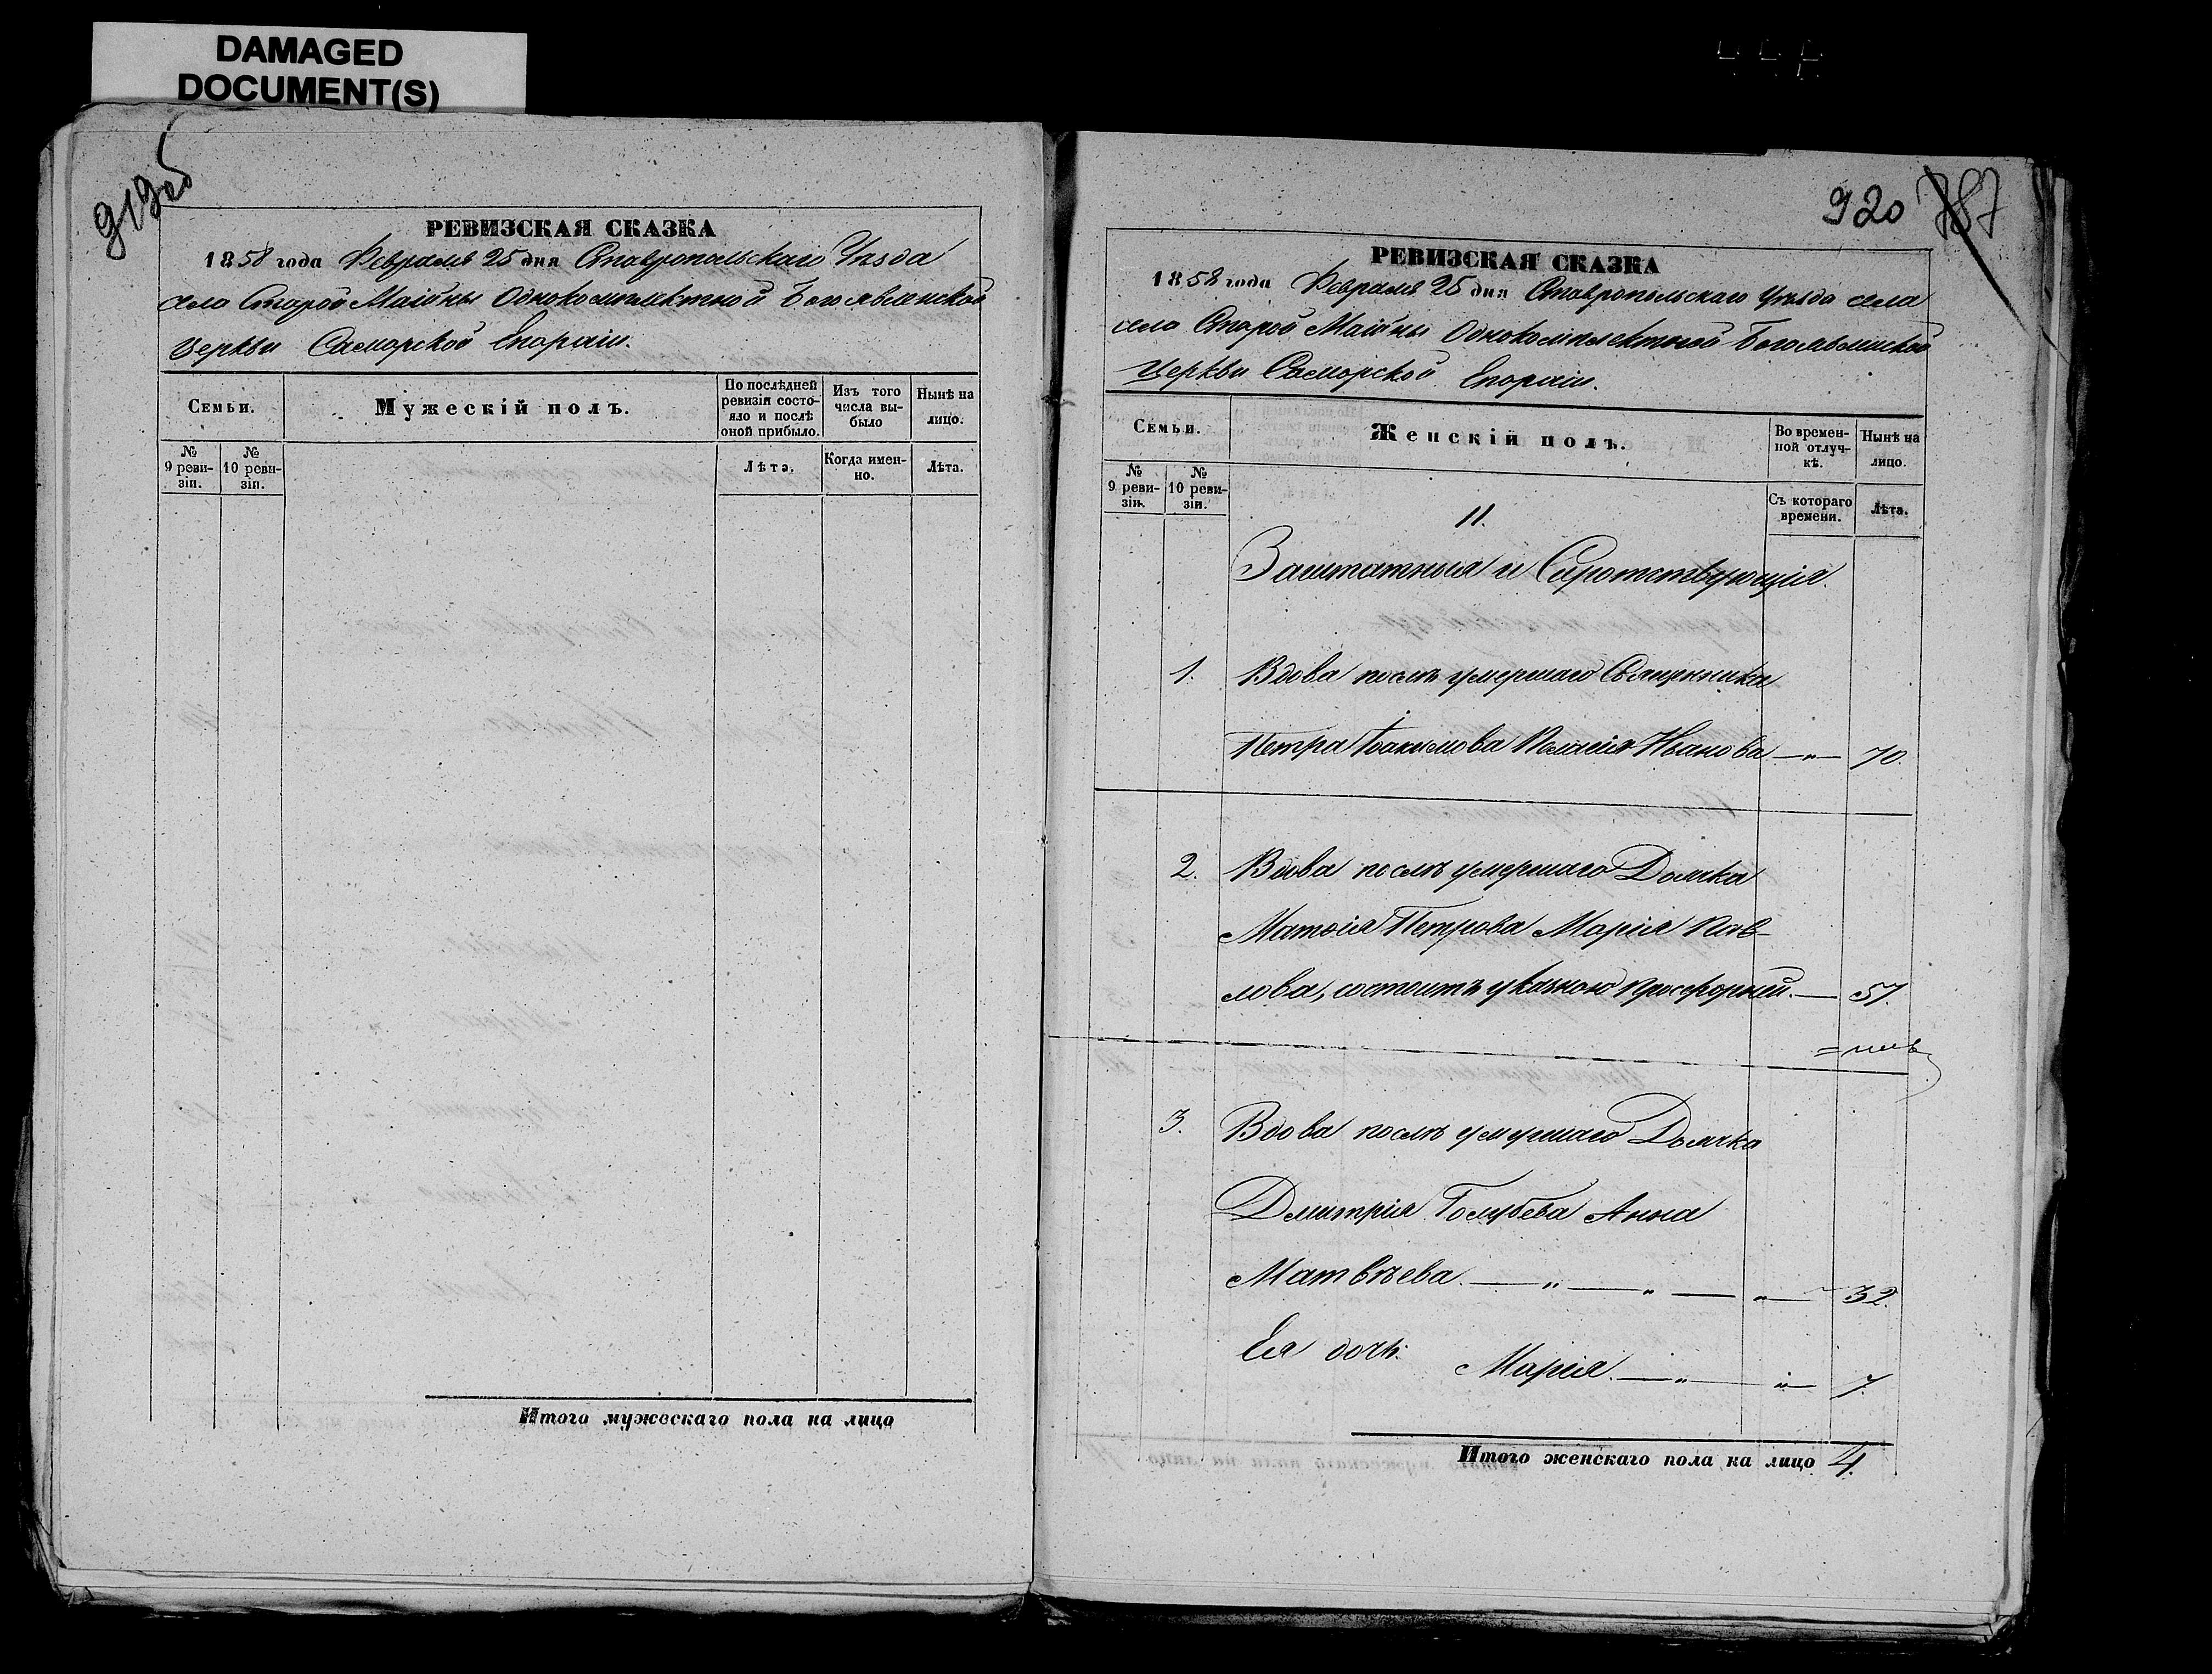 DAMAGED
DOCUMENT(S)
919об
РЕВИЗСКАЯ СКАЗКА
1858 года Февраля 25 дня Ставропольскаго Уѣзда
села Старой Маійны Однокомплектной Богоявленской
Церкви Самарской Епархіи.
Семьи.
Мужескій полъ.
По послѣдней ревизіи состояло и послѣ оной прибыло.
Изъ того числа выбыло
Нынѣ на лицо.
№ 9 ревизіи.
№ 10 ревизіи.
Лѣта.
Когда именно.
Лѣта.
Итого мужескаго пола на лицо
920 787
РЕВИЗСКАЯ СКАЗКА
1858 года Февраля 25 дня Ставропольскаго Уѣзда села
села Старой Маійны Однокомплектной Богоявленской
Церкви Самарской Епархіи.
Семьи.
Женскій полъ.
Во временной отлучкѣ.
Нынѣ на лицо.
№ 9 ревизіи.
№ 10 ревизіи.
Съ котораго времени.
Лѣта.
11.
Заштатныя и Сиротствующія.
1. Вдова послѣ умершаго Священника
Петра Іоакимова Иванова — „ — 70.
2. Вдова послѣ умершаго Дьячка
Матвія Петрова Марія Пав-
лова, состоитъ указною просфорней. — 57.
3. Вдова послѣ умершаго Дьячка
Дмитрія Голубева Анна
Матвѣева. — „ — „ — „ — 32.
Ея дочь:
Марія. — „ — „ — 7.
Итого женскаго пола на лицо 4.